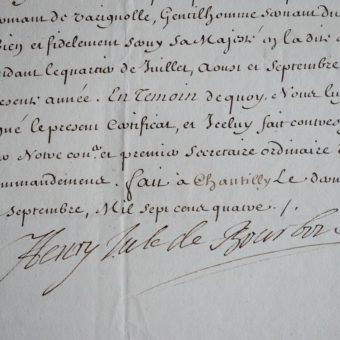 de Vaignolle, Gentilhomme servant du
bien et fidelement servy sa Majesté en la dite
pendant le quartier de Juillet, Aoust et Septembre
presente année. En Temoin de quoy Nous lu
le present Certificat, et Iceluy fait contresi
Notre con.er et premier Secretaire ordinaire d
ommandemens. fait à Chantilly Le
Septembre, Mil sept cens quatre /.
Henry Jule de Bourbon